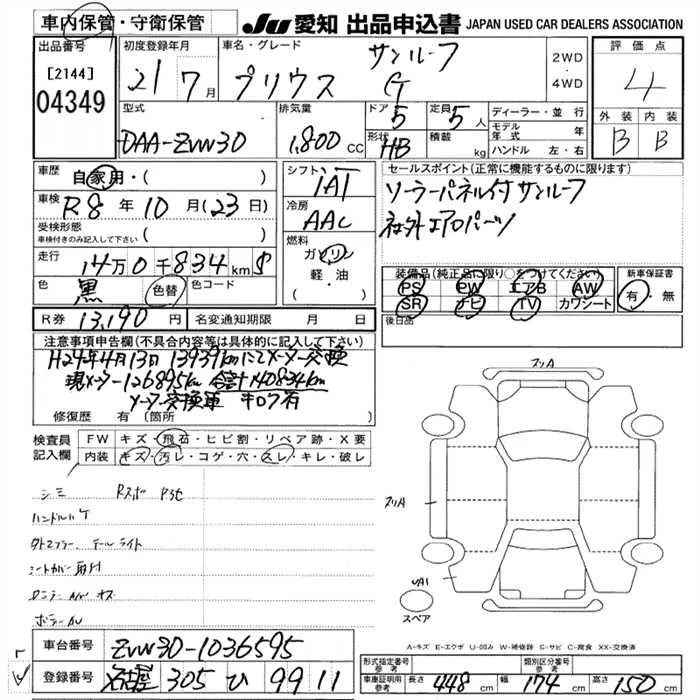 車内保管・守衛保管
JU 愛知 出品申込書 JAPAN USED CAR DEALERS ASSOCIATION
出品番号
[2144]
04349
初度登録年月
21 7月
車名・グレード
サンルーフ
プリウス G
2WD
・
4WD
評価点
4
外装 内装
B B
型式
DAA-ZVW30
排気量
1,800cc
ドア 5
形状 HB
定員 5人
積載 kg
ディーラー・並行
モデル年式 年
ハンドル 左・右
車歴
自家用・( )
車検
R8年10月(23日)
受検形態
車検付きのみ記入して下さい ( )
走行
14万0千834km
色
黒 色替
色コード
シフト
IAT
冷房
AAC
燃料
ガソリン
軽・油
( )
セールスポイント(正常に機能するものに限ります)
ソーラーパネル付サンルーフ
社外エアロパーツ
装備品(純正品に限り○をつけてください)
PS PW エアB AW
SR ナビ TV カワシート
新車保証書
有・無
R券 13,190円
名変通知期限 月 日
後日品
注意事項申告欄(不具合内容等は具体的に記入して下さい)
H24年4月13日 13939kmにてメーター交換
現メーター126895km 合計140834km
メーター交換車 キロク有
修復歴 有〔箇所 〕
検査員記入欄
FW キズ・飛石・ヒビ割・リペア跡・X要
内装 キズ・汚レ・コゲ・穴・スレ・キレ・破レ
シミ
ハンドルハゲ
外マフラー テールライト
シートカバー取付
プリA
プリA
UA1
スペア
A-キズ E-エクボ U-凹み W-補修跡 S-サビ C-腐食 XX-交換済
車台番号 ZVW30-1036595
登録番号 名古屋 305 ひ 9911
形式指定番号
参考
類別区分番号
参考
車庫証明用
参考
長さ 448cm 幅 174cm 高さ 150cm